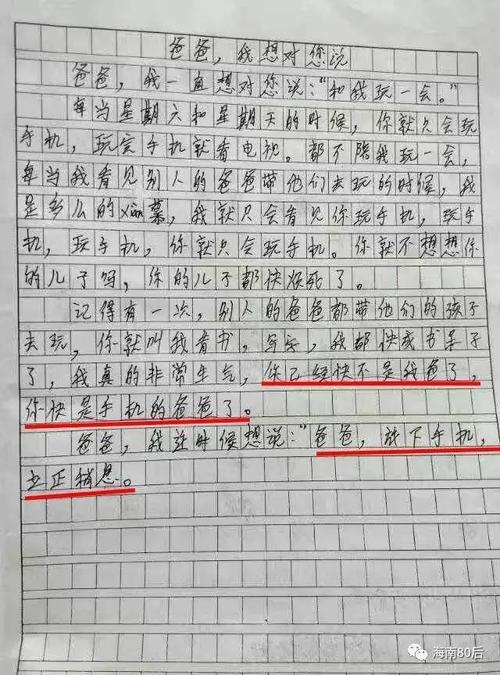 爸爸，我想对您说
爸爸，我一直想对您说：“和我玩一会。”
每当星期六和星期天的时候，你就只会玩
手机，玩完手机就看电视。都不陪我玩一会，
每当我看见别人的爸爸带他们去玩的时候，我
是多么的xian慕，我就只会看见你玩手机，玩手
机，玩手机，你就只会玩手机。你就不想想你
的儿子吗，你的儿子都快烦死了。
记得有一次，别人的爸爸都带他们的孩子
去玩，你就叫我看书，写字，我都快成书呆子
了，我真的非常生气，你已经快不是我爸了，
你快是手机的爸爸了。
爸爸，我这时候想说：“爸爸，放下手机，
立正稍息。
海南80后